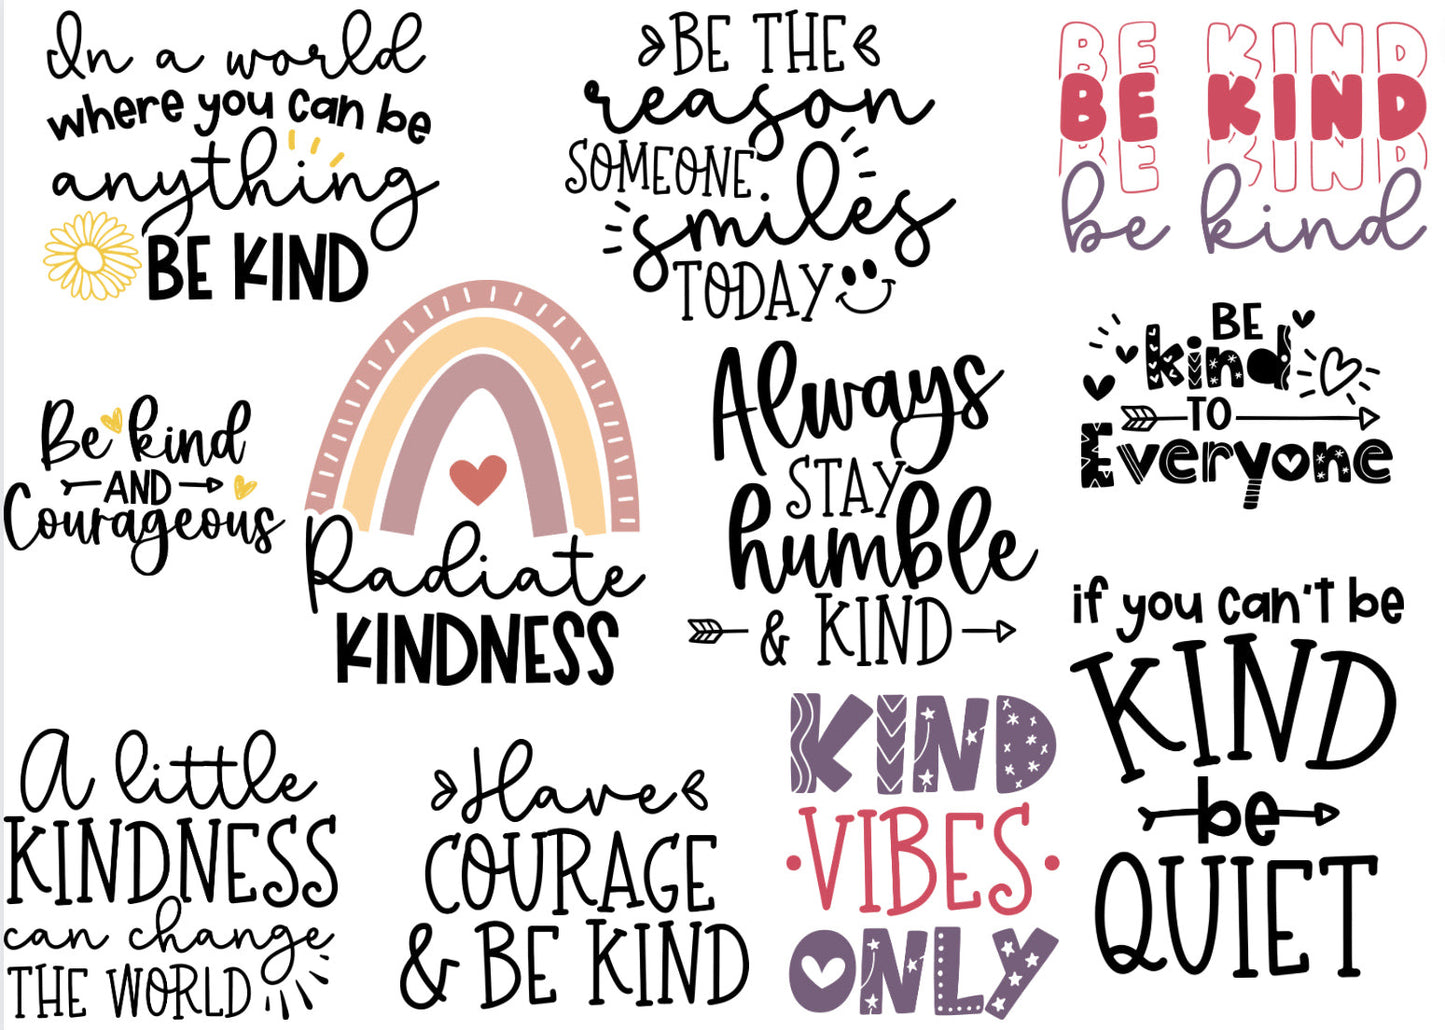 In a world
where you can be
anything
BE KIND
BE THE
reason
SOMEONE
smiles
TODAY
BE KIND
BE KIND
BE KIND
be kind
Be kind
AND
Courageous
Radiate
KINDNESS
Always
STAY
humble
& KIND
BE
kind
TO
Everyone
if you can't be
KIND
be
QUIET
A little
KINDNESS
can change
THE WORLD
Have
COURAGE
& BE KIND
KIND
VIBES
ONLY